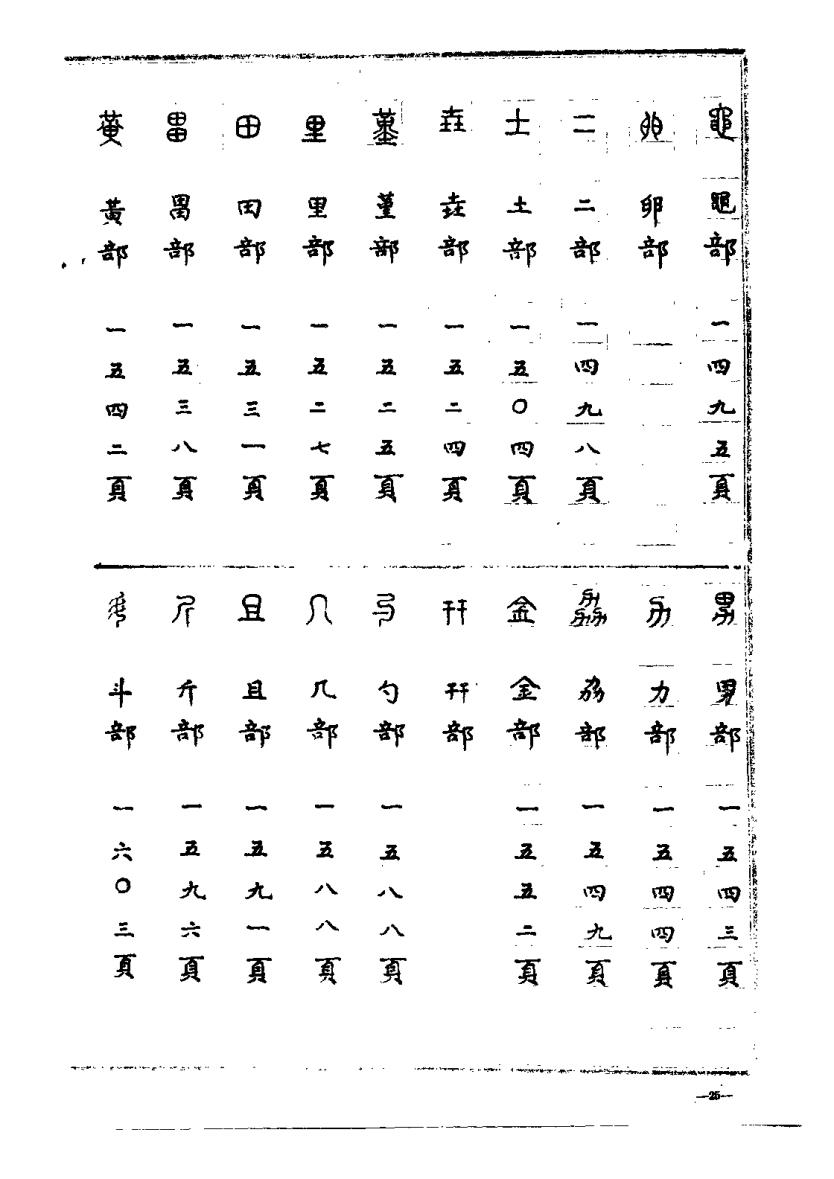 黽 黽部 一四九五頁
卵 卵部
二 二部 一四九八頁
土 土部 一五〇四頁
垚 垚部 一五二四頁
堇 堇部 一五二五頁
里 里部 一五二七頁
田 田部 一五三一頁
畕 畕部 一五三八頁
黃 黃部 一五四二頁
男 男部 一五四三頁
力 力部 一五四四頁
劦 劦部 一五四九頁
金 金部 一五五二頁
幵 幵部
勺 勺部 一五八八頁
几 几部 一五八八頁
且 且部 一五九一頁
斤 斤部 一五九六頁
斗 斗部 一六〇三頁
—25—